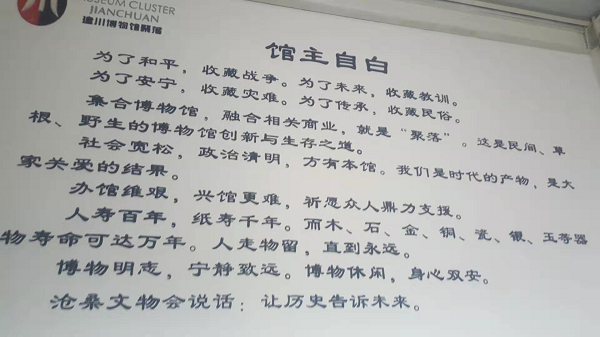 MUSEUM CLUSTER
JIANCHUAN
建川博物馆聚落
馆主自白
为了和平，收藏战争。为了未来，收藏教训。
为了安宁，收藏灾难。为了传承，收藏民俗。
集合博物馆，融合相关商业，就是“聚落”。这是民间、草
根、野生的博物馆创新与生存之道。
社会宽松，政治清明，方有本馆。我们是时代的产物，是大
家关爱的结果。
办馆维艰，兴馆更难，祈愿众人鼎力支援。
人寿百年，纸寿千年。而木、石、金、铜、瓷、银、玉等器
物寿命可达万年。人走物留，直到永远。
博物明志，宁静致远。博物休闲，身心双安。
沧桑文物会说话：让历史告诉未来。